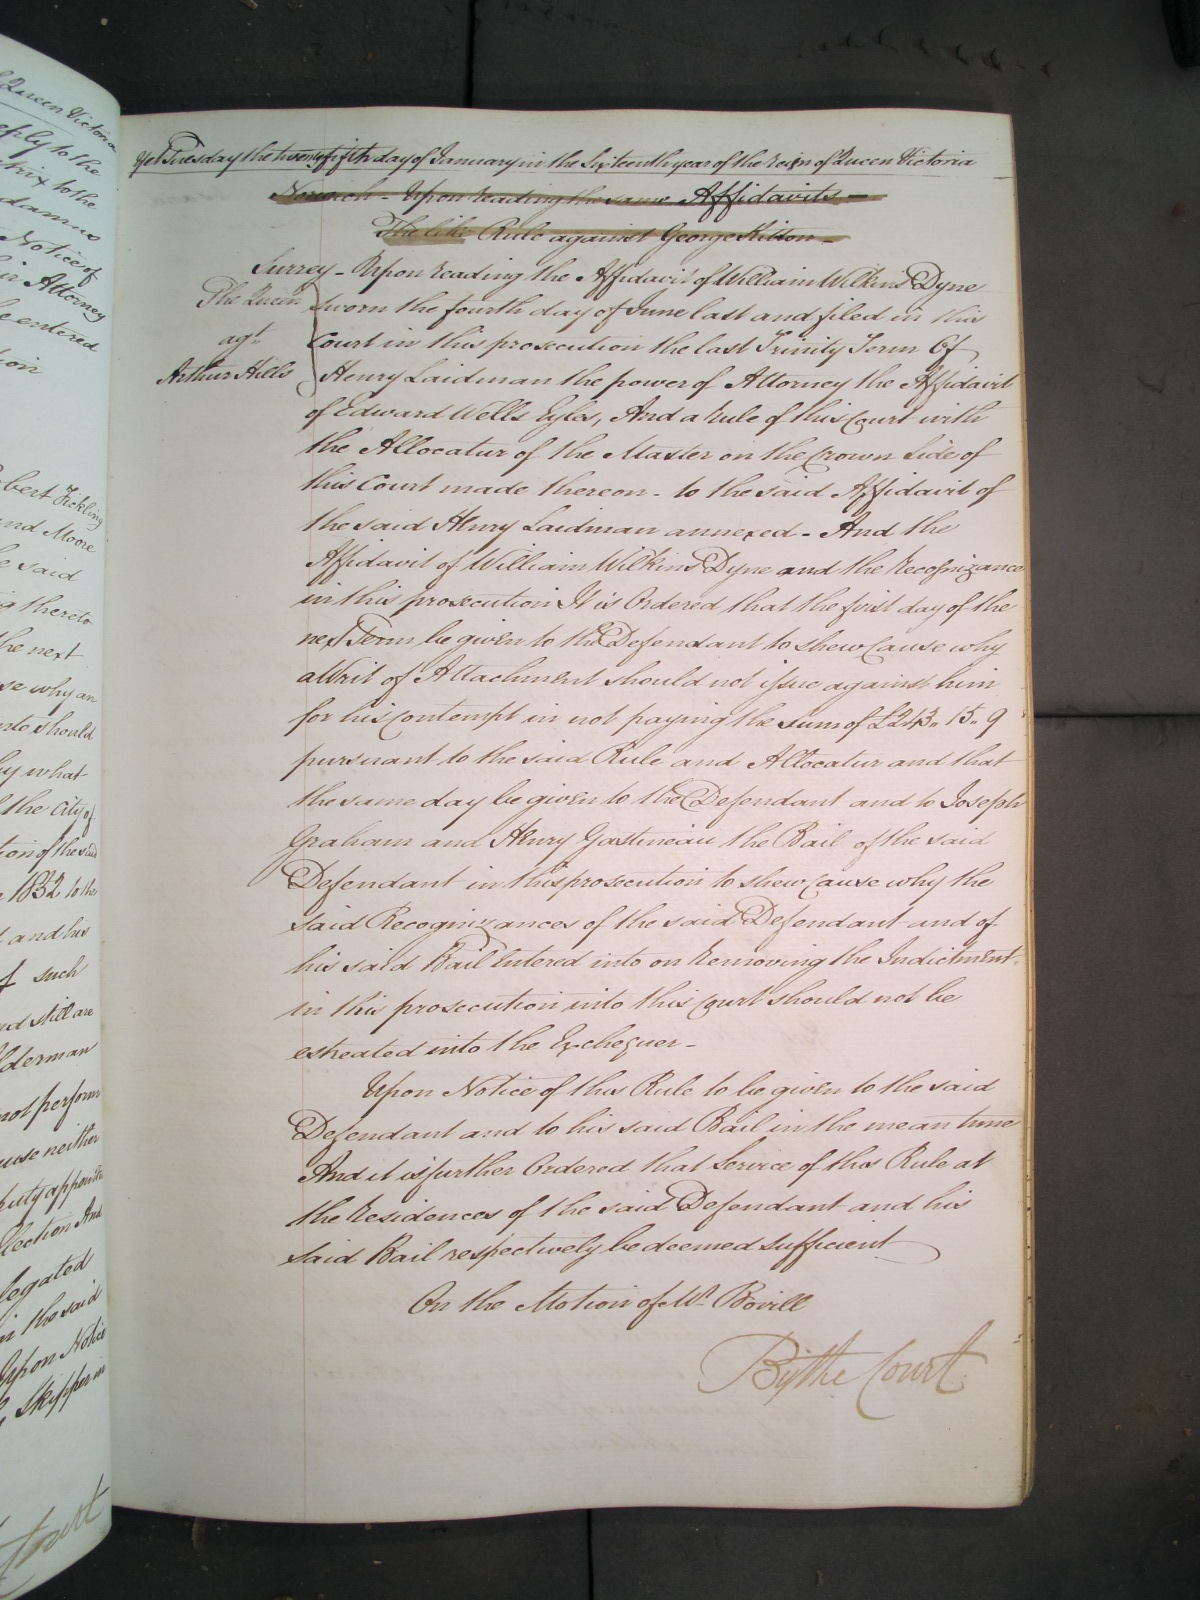 Yet Tuesday the twentyfifth day of January in the Sixteenth year of the Reign of Queen Victoria
Norwich - Upon reading the same Affidavits -
The like Rule against George Kitton -
Surrey - Upon reading the Affidavit of William Wilkins Dyne
The Queen sworn the fourth day of June last and filed in this
agt. Court in this prosecution the last Trinity Term Of
Arthur Hills Henry Laidman the power of Attorney the Affidavit
of Edward Wells Eyles, And a Rule of this Court with
the Allocatur of the Master on the Crown Side of
this Court made thereon - to the said Affidavit of
the said Henry Laidman annexed - And the
Affidavit of William Wilkins Dyne and the Recognizance
in this prosecution It is Ordered that the first day of the
next Term be given to the Defendant to shew Cause why
a Writ of Attachment should not issue against him
for his Contempt in not paying the sum of £243 " 15 " 9
pursuant to the said Rule and Allocatur and that
the same day be given to the Defendant and to Joseph
Graham and Henry Gastineau the Bail of the said
Defendant in this prosecution to shew Cause why the
said Recognizances of the said Defendant and of
his said Bail Entered into on removing the Indictment
in this prosecution into this Court should not be
estreated into the Exchequer -
Upon Notice of this Rule to be given to the said
Defendant and to his said Bail in the mean time
And it is further Ordered that Service of this Rule at
the Residences of the said Defendant and his
said Bail respectively be deemed sufficient
On the Motion of Mr. Bovill
By the Court
Queen Victoria
reply to the
to the
Notice of
Attorney
entered
Robert Fickling
and Moore
said
thereto
the next
why an
should
by what
the City of
tion of the said
1832 to the
and his
of such
and still are
Alderman
not perform
neither
Election And
in the said
Upon Notice
Skipper in
Court